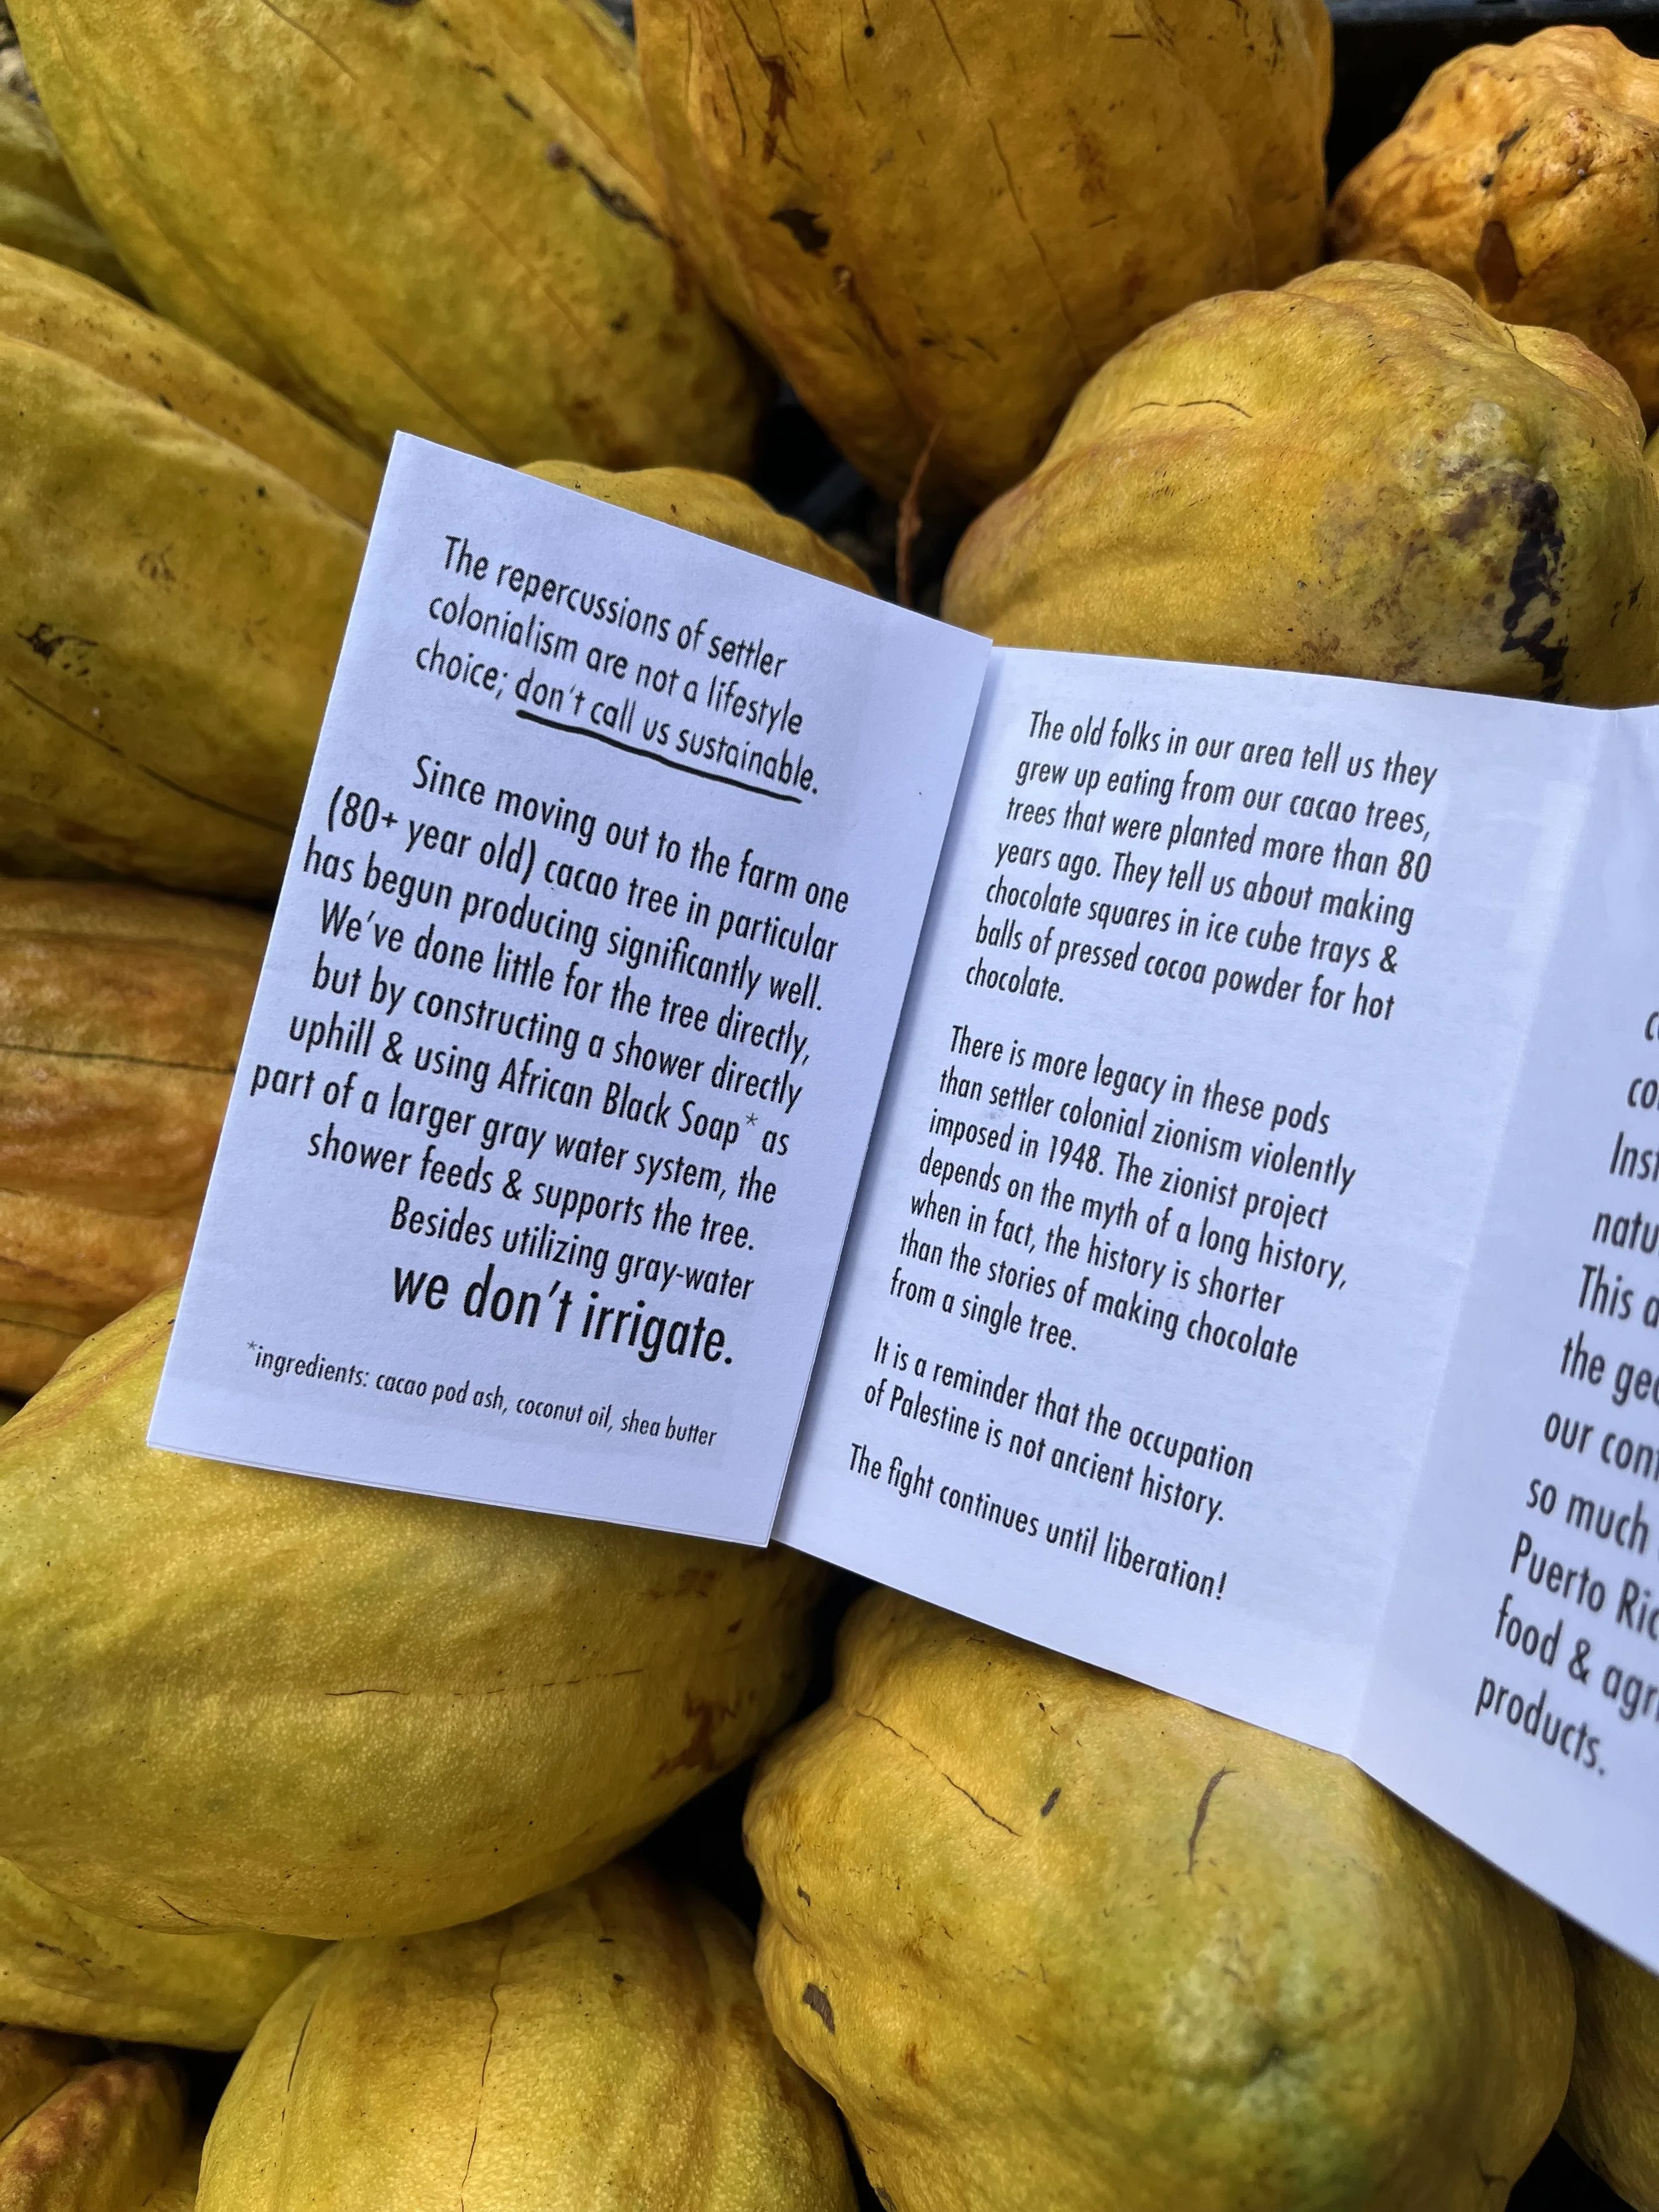 The repercussions of settler
colonialism are not a lifestyle
choice; don't call us sustainable.
Since moving out to the farm one
(80+ year old) cacao tree in particular
has begun producing significantly well.
We've done little for the tree directly,
but by constructing a shower directly
uphill & using African Black Soap* as
part of a larger gray water system, the
shower feeds & supports the tree.
Besides utilizing gray-water
we don't irrigate.
*ingredients: cacao pod ash, coconut oil, shea butter
The old folks in our area tell us they
grew up eating from our cacao trees,
trees that were planted more than 80
years ago. They tell us about making
chocolate squares in ice cube trays &
balls of pressed cocoa powder for hot
chocolate.
There is more legacy in these pods
than settler colonial zionism violently
imposed in 1948. The zionist project
depends on the myth of a long history,
when in fact, the history is shorter
than the stories of making chocolate
from a single tree.
It is a reminder that the occupation
of Palestine is not ancient history.
The fight continues until liberation!
This
the
our
so much
Puerto
food &
products.